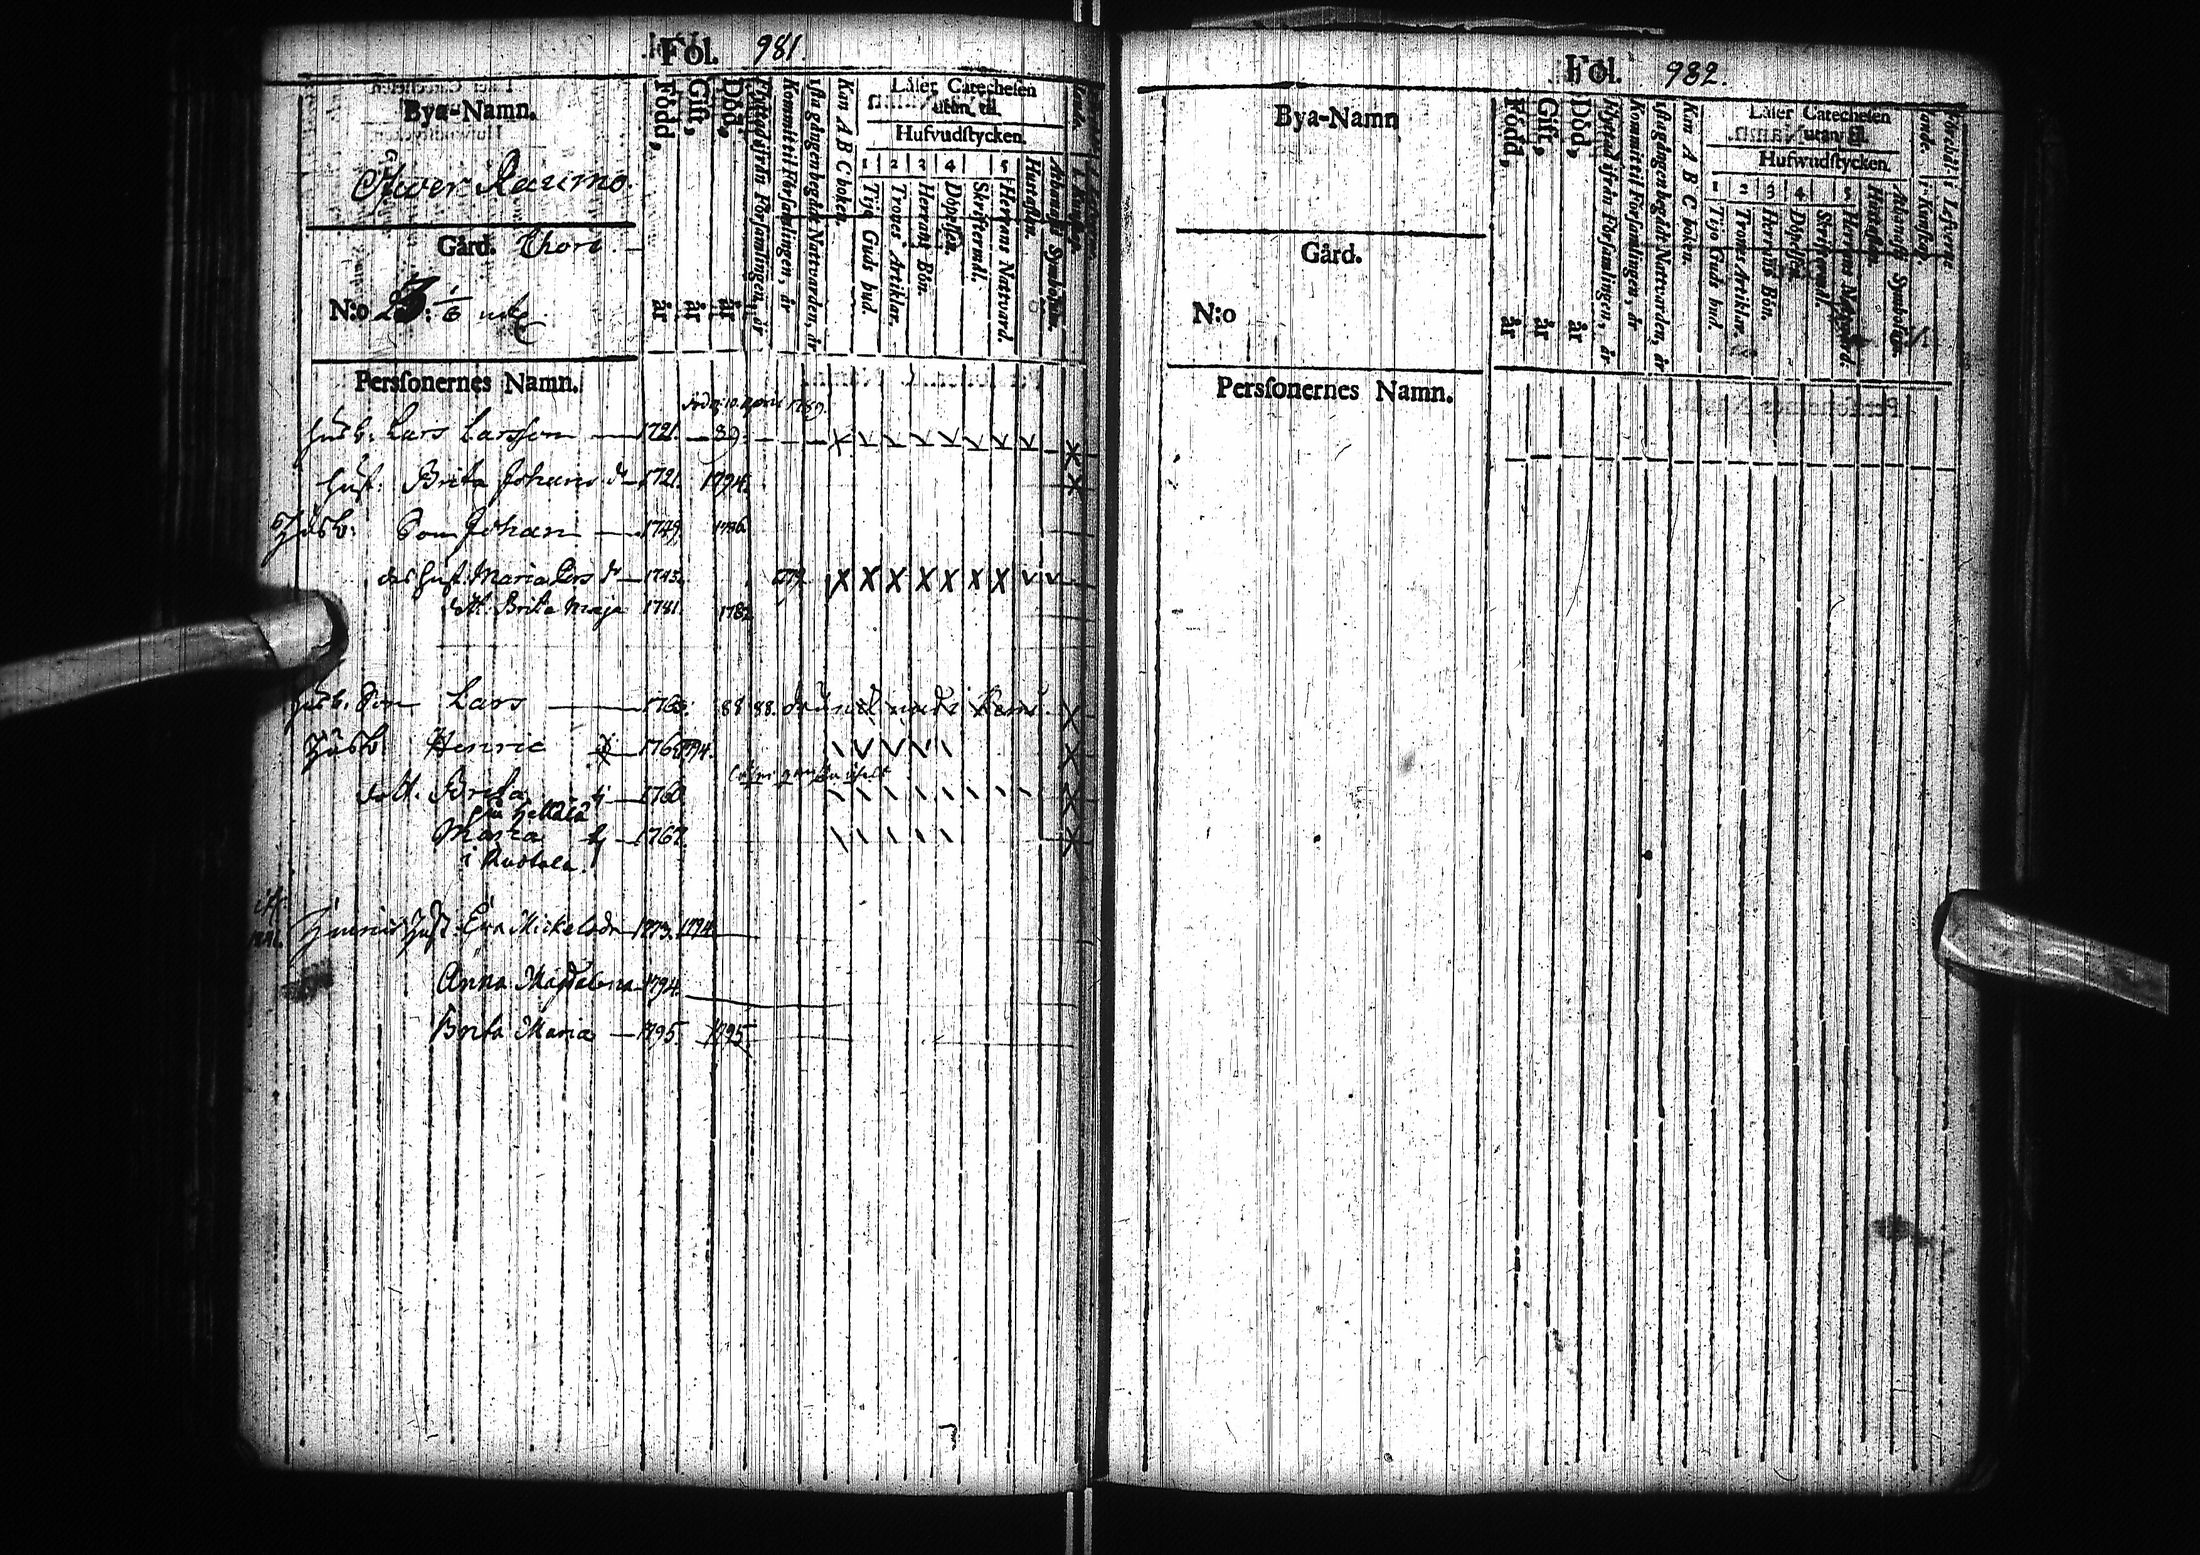 Fol. 981.
Bya-Namn.
Öfwer Rauma.
Gård. Thori
N:o 23: 1/6 mtl
Perſonernes Namn.
Född, år
Gift, år
Död, år
Flyttad ifrån Förſamlingen, år
Kommit til Förſamlingen, år
1ſta gången begådt Nattvarden, år
Kan A B C boken.
Läſer Catecheſen
utan til.
Hufvudſtycken.
1 2 3 4 5
Tijo Guds bud.
Trones Artiklar.
Herrans Bön.
Döpelſen.
Skriftermål.
Herrans Nattvard.
Huſtaflan.
Athanaſii Symbolum.
död 10. April 1789.
Husb: Lars Larsson 1721. 89.
Hust: Brita Johans dr 1721. 1794.
Husb: Son Johan 1749. 1786
des Hust. Maria Pers dr 1743.
dott. Brita Maja 1781 1782
Husb. Son Lars 1763. 88 88.
Husb. Henric 1768 1794.
dott. Brita 1760
Maria 1767.
i
Henrics Hust. Eva Mickelsdr 1773. 1794
Anna Magdalena 1794.
Brita Maria 1795. 1795
Fol. 982.
Bya-Namn
Gård.
N:o
Perſonernes Namn.
Född, år
Gift, år
Död, år
Flyttad ifrån Förſamlingen, år
Kommit til Förſamlingen, år
1ſta gången begådt Nattvarden, år
Kan A B C boken.
Läſer Catecheſen
utan til.
Hufwudſtycken.
1 2 3 4 5
Tijo Guds bud.
Trones Artiklar.
Herrans Bön.
Döpelſen.
Skriftermål.
Herrans Nattvard.
Huſtaflan.
Athanaſii Symbolum.